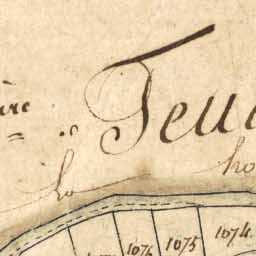 ère
Teu
ho
ho
1076 1075 1074.